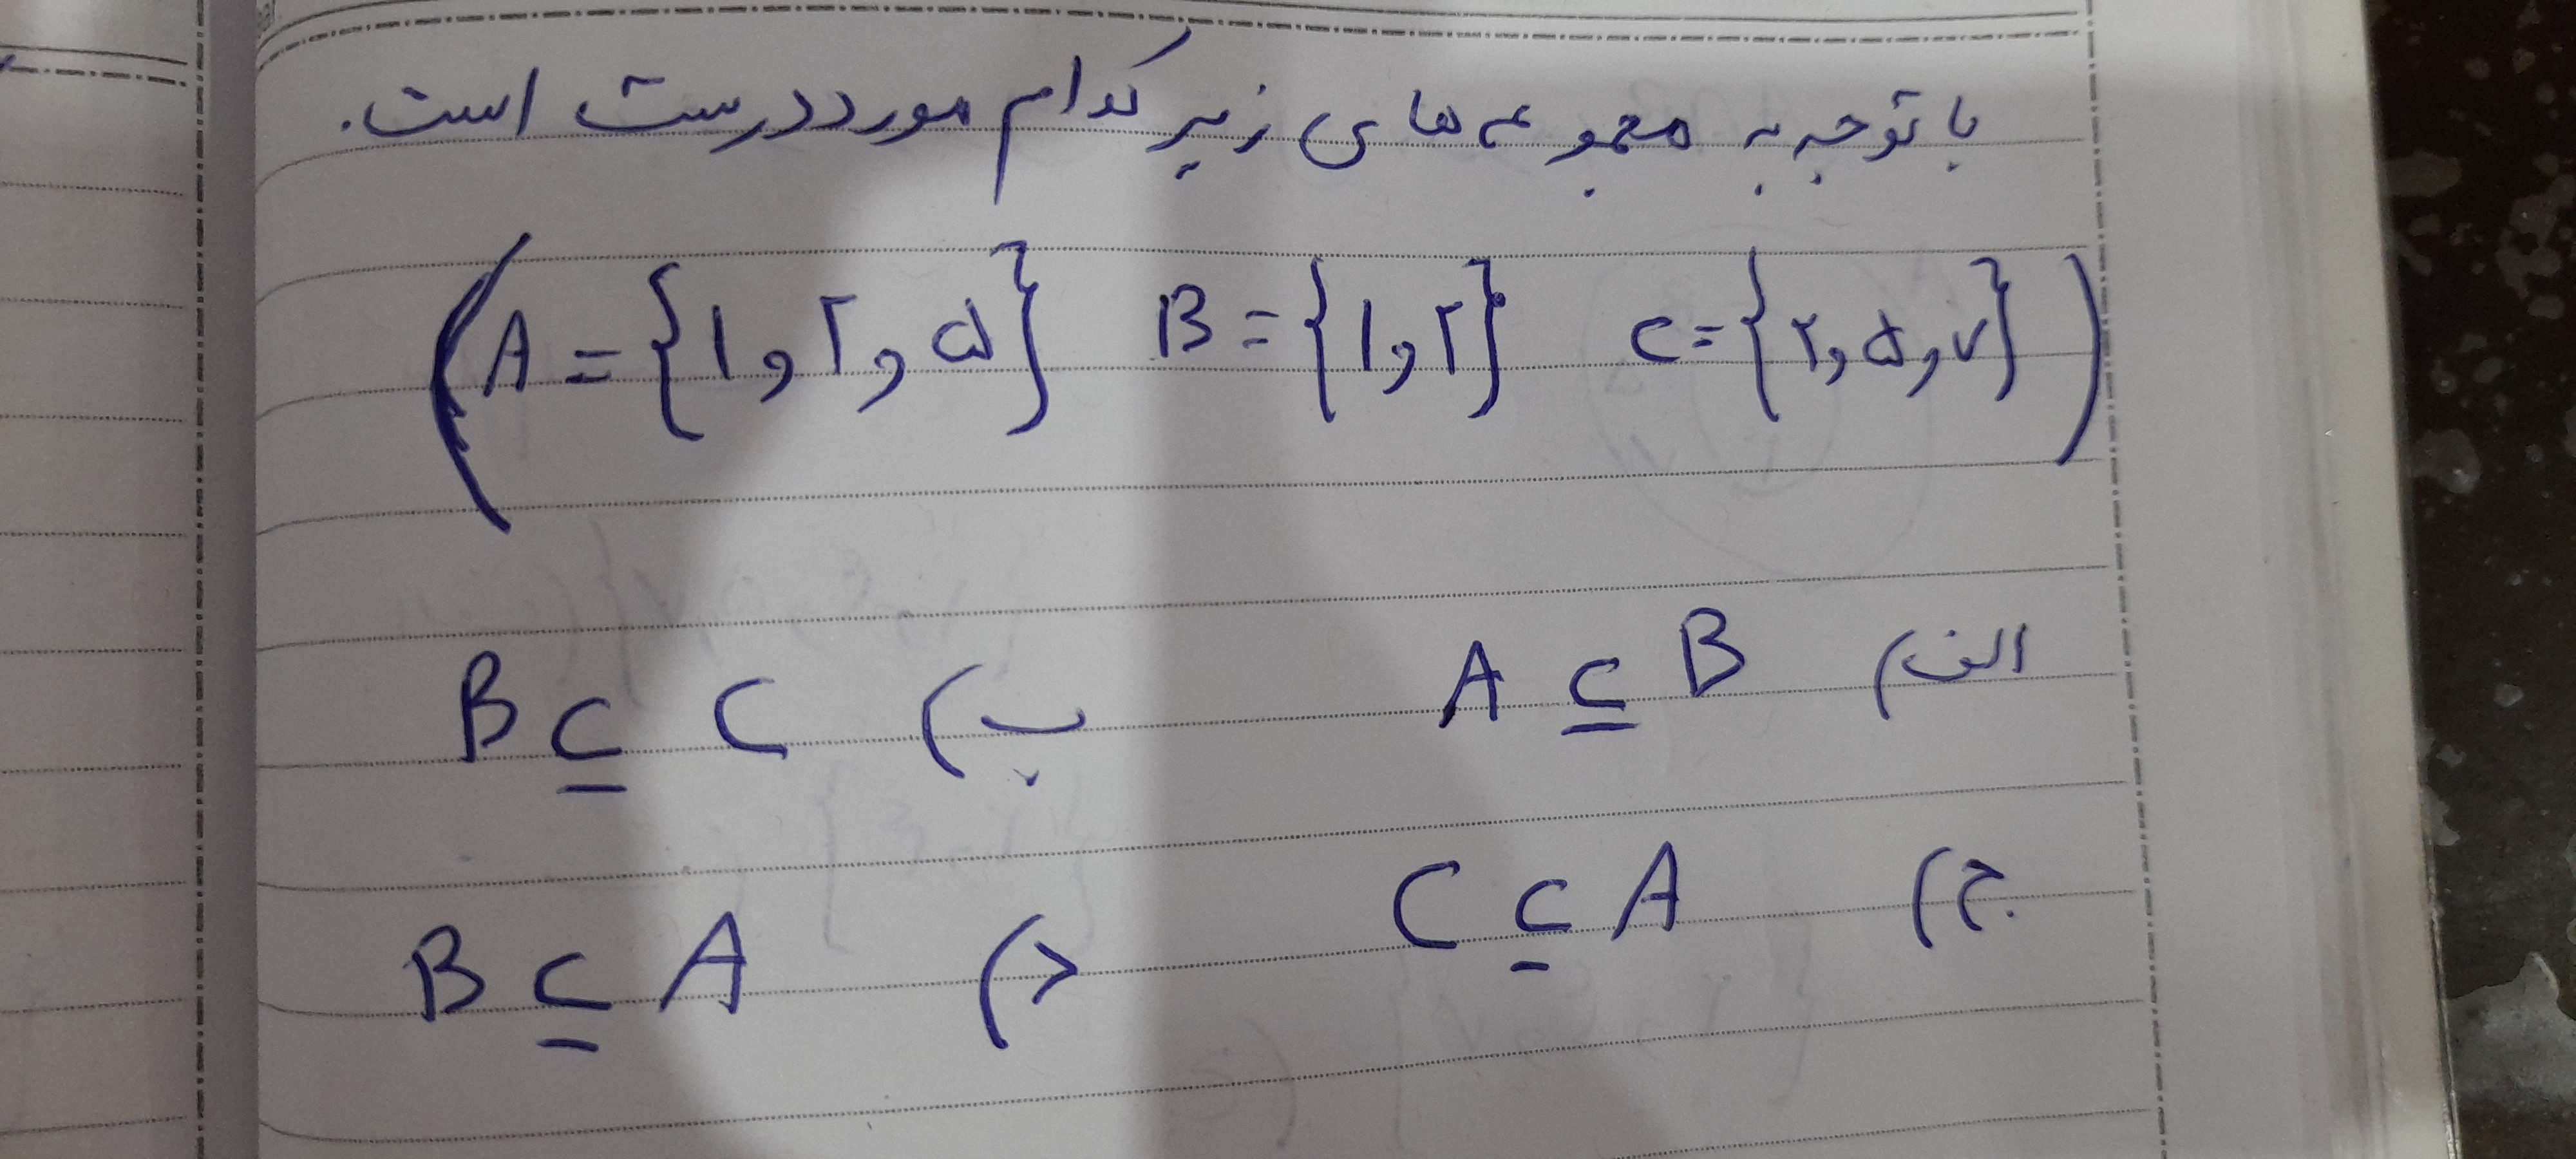 با توجه به مجموعه های زیر کدام مورد درست است.
(A = {۱, ۲, ۵} B = {۱, ۲} C = {۲, ۵, ۷})
الف) A ⊆ B ب) B ⊆ C
ج) C ⊆ A د) B ⊆ A